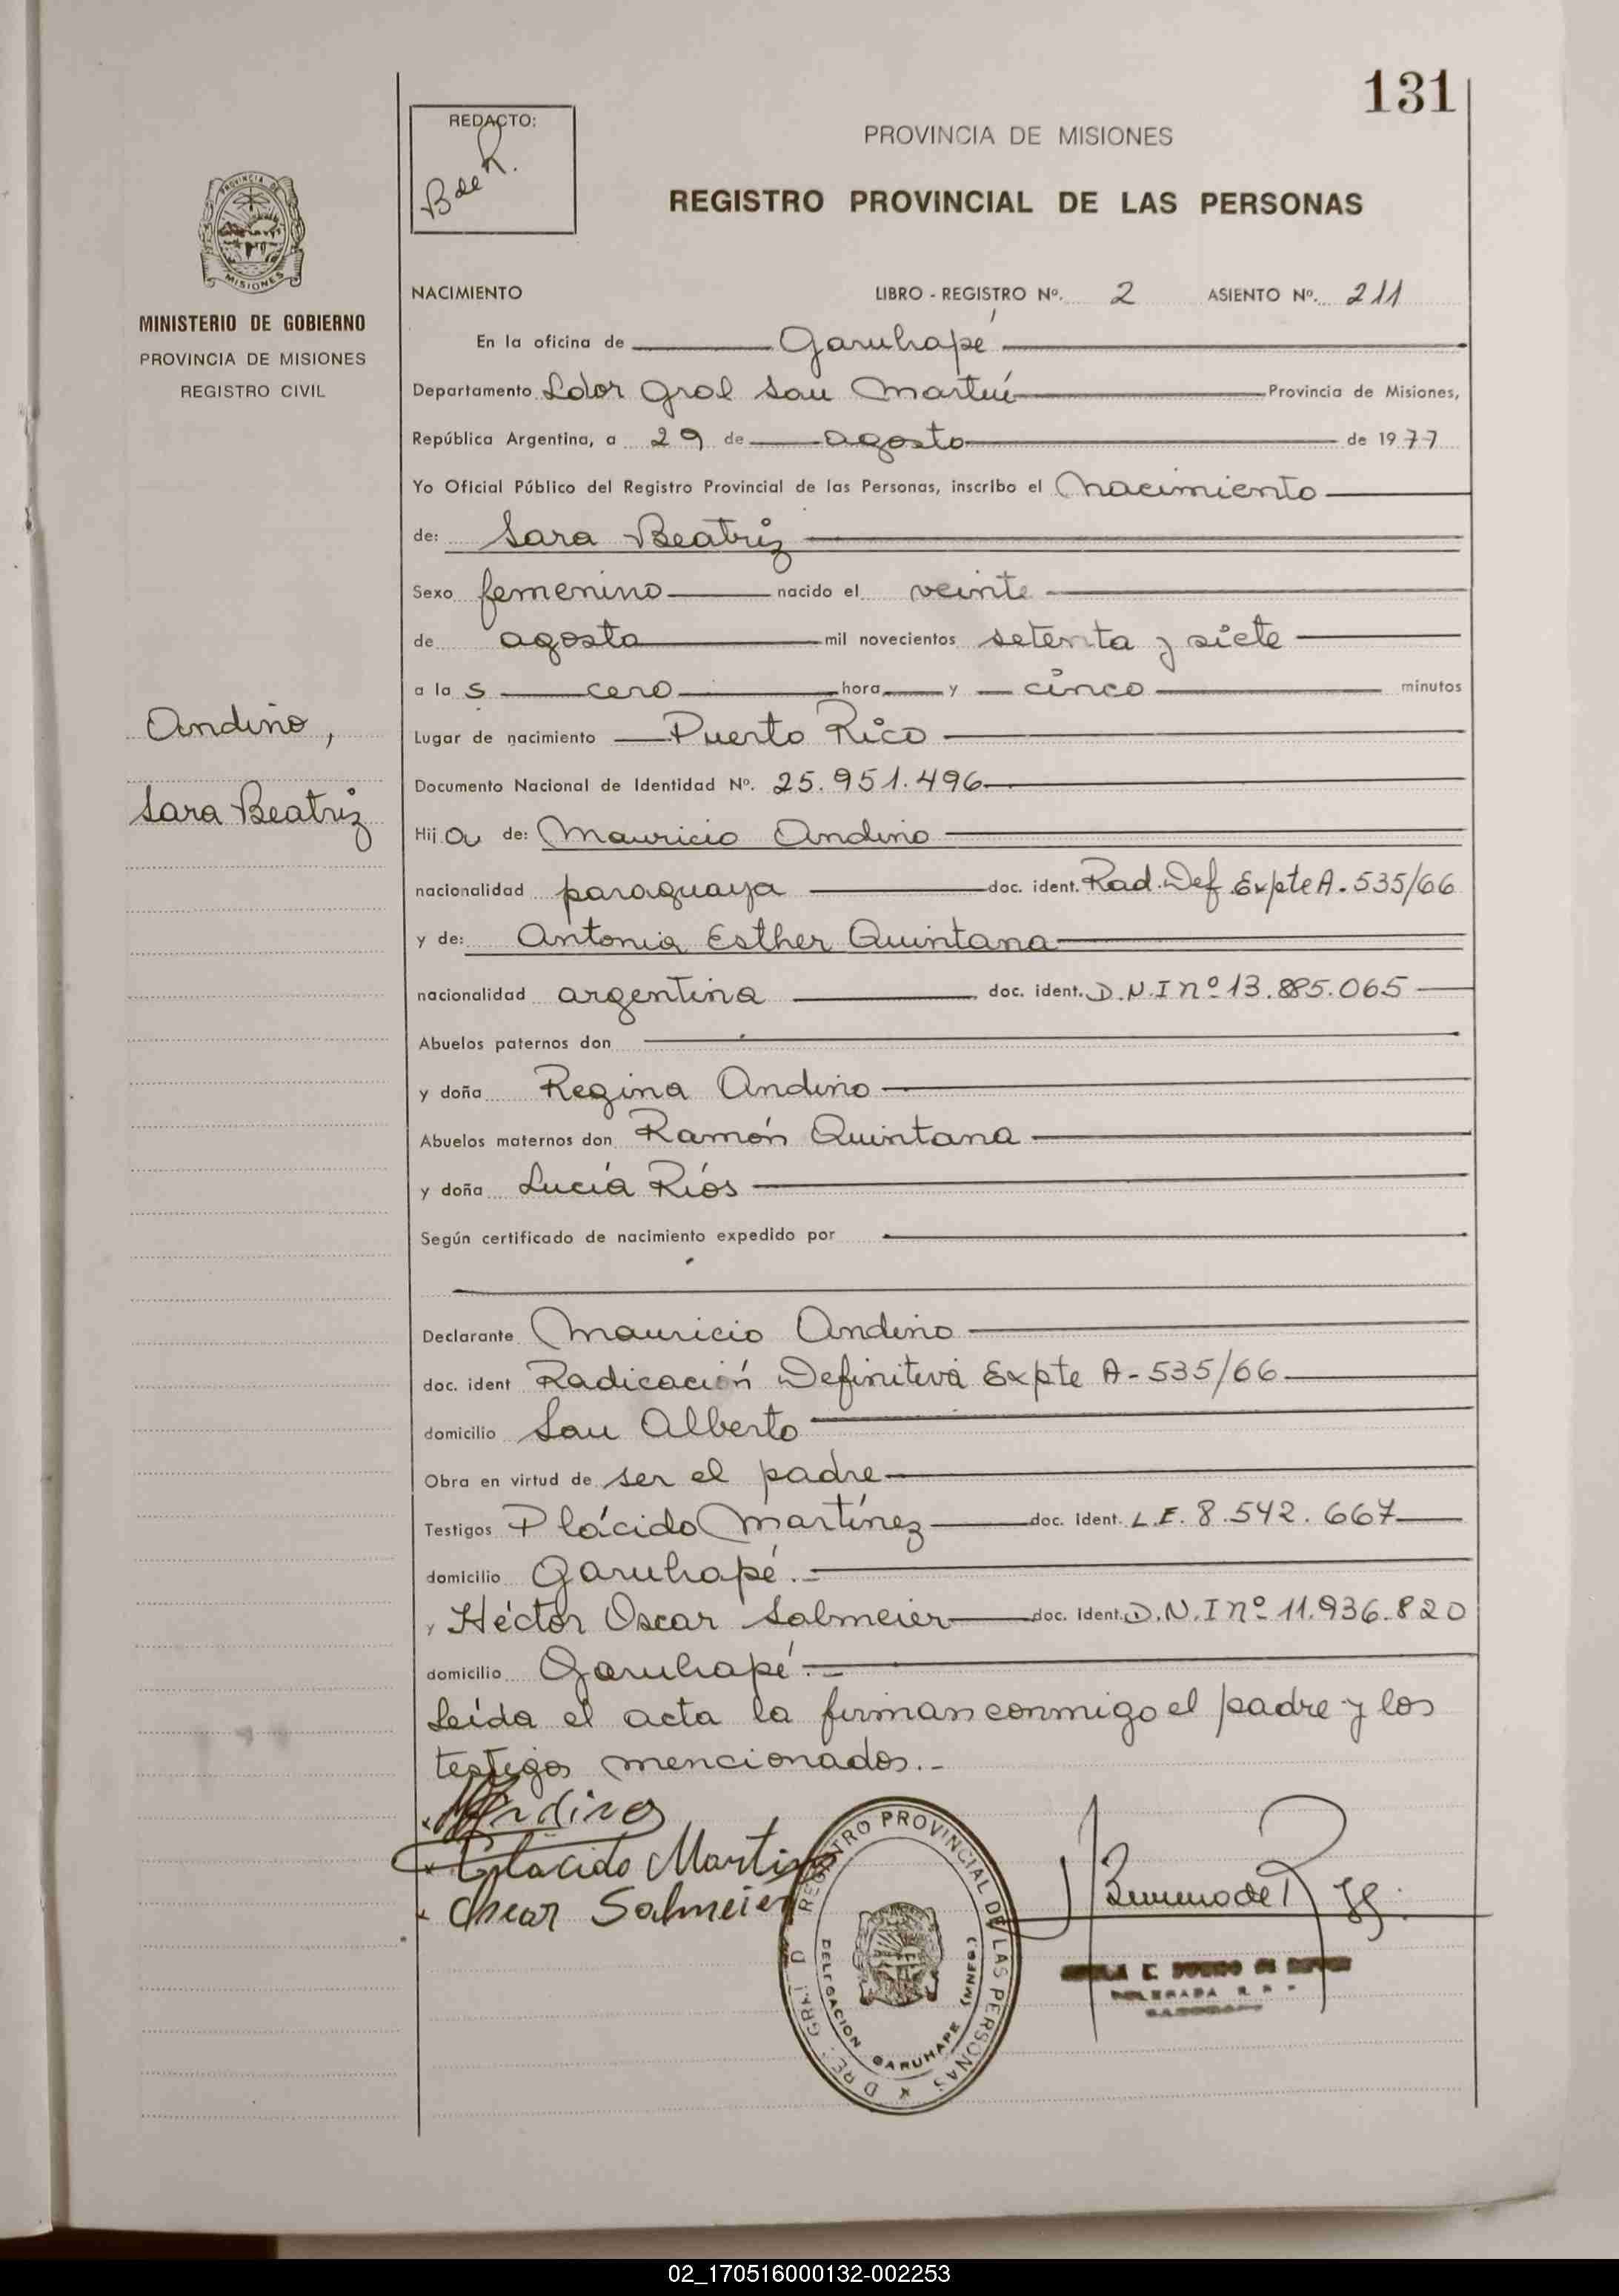 131
REDACTO:
B de R.
PROVINCIA DE MISIONES
REGISTRO PROVINCIAL DE LAS PERSONAS
PROVINCIA DE
MISIONES
MINISTERIO DE GOBIERNO
PROVINCIA DE MISIONES
REGISTRO CIVIL
NACIMIENTO LIBRO - REGISTRO Nº. 2 ASIENTO Nº. 211
En la oficina de Garuhapé
Departamento Ldor Gral San Martín Provincia de Misiones,
República Argentina, a 29 de agosto de 1977
Yo Oficial Público del Registro Provincial de las Personas, inscribo el nacimiento
de: Sara Beatriz
Sexo femenino nacido el veinte
de agosto mil novecientos setenta y siete
a la s cero hora y cinco minutos
Andino,
Sara Beatriz
Lugar de nacimiento Puerto Rico
Documento Nacional de Identidad Nº. 25.951.496
Hija de: Mauricio Andino
nacionalidad paraguaya doc. ident. Rad. Def Expte A-535/66
y de: Antonia Esther Quintana
nacionalidad argentina doc. ident. D.N.I nº 13.885.065
Abuelos paternos don
y doña Regina Andino
Abuelos maternos don Ramón Quintana
y doña Lucía Ríos
Según certificado de nacimiento expedido por
Declarante Mauricio Andino
doc. ident Radicación Definitiva Expte A-535/66
domicilio San Alberto
Obra en virtud de ser el padre
Testigos Plácido Martínez doc. ident. L.E. 8.542.667
domicilio Garuhapé.-
y Héctor Oscar Salmeier doc. ident. D.N.I nº 11.936.820
domicilio Garuhapé.-
Leída el acta la firman conmigo el padre y los
testigos mencionados.-
Andino
Placido Martinez
Oscar Salmeier
REGISTRO PROVINCIAL DE LAS PERSONAS
DELEGACION GARUHAPE (MNES)
02_170516000132-002253